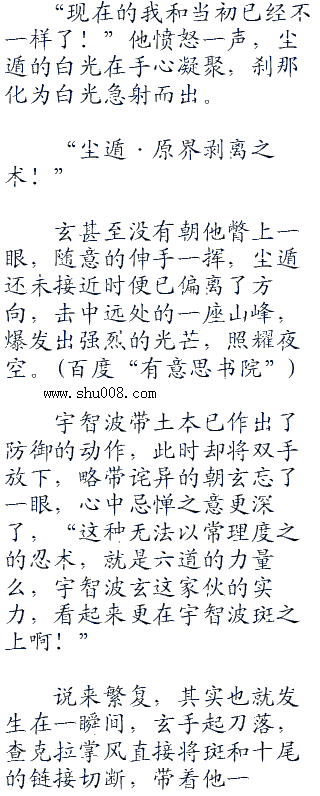 “现在的我和当初已经不
一样了！”他愤怒一声，尘
遁的白光在手心凝聚，刹那
化为白光急射而出。
“尘遁·原界剥离之
术！”
玄甚至没有朝他瞥上一
眼，随意的伸手一挥，尘遁
还未接近时便已偏离了方
向，击中远处的一座山峰，
爆发出强烈的光芒，照耀夜
空。(百度“有意思书院”)
www.shu008.com
宇智波带土本已作出了
防御的动作，此时却将双手
放下，略带诧异的朝玄忘了
一眼，心中忌惮之意更深
了，“这种无法以常理度之
的忍术，就是六道的力量
么，宇智波玄这家伙的实
力，看起来更在宇智波斑之
上啊！”
说来繁复，其实也就发
生在一瞬间，玄手起刀落，
查克拉掌风直接将斑和十尾
的链接切断，带着他一